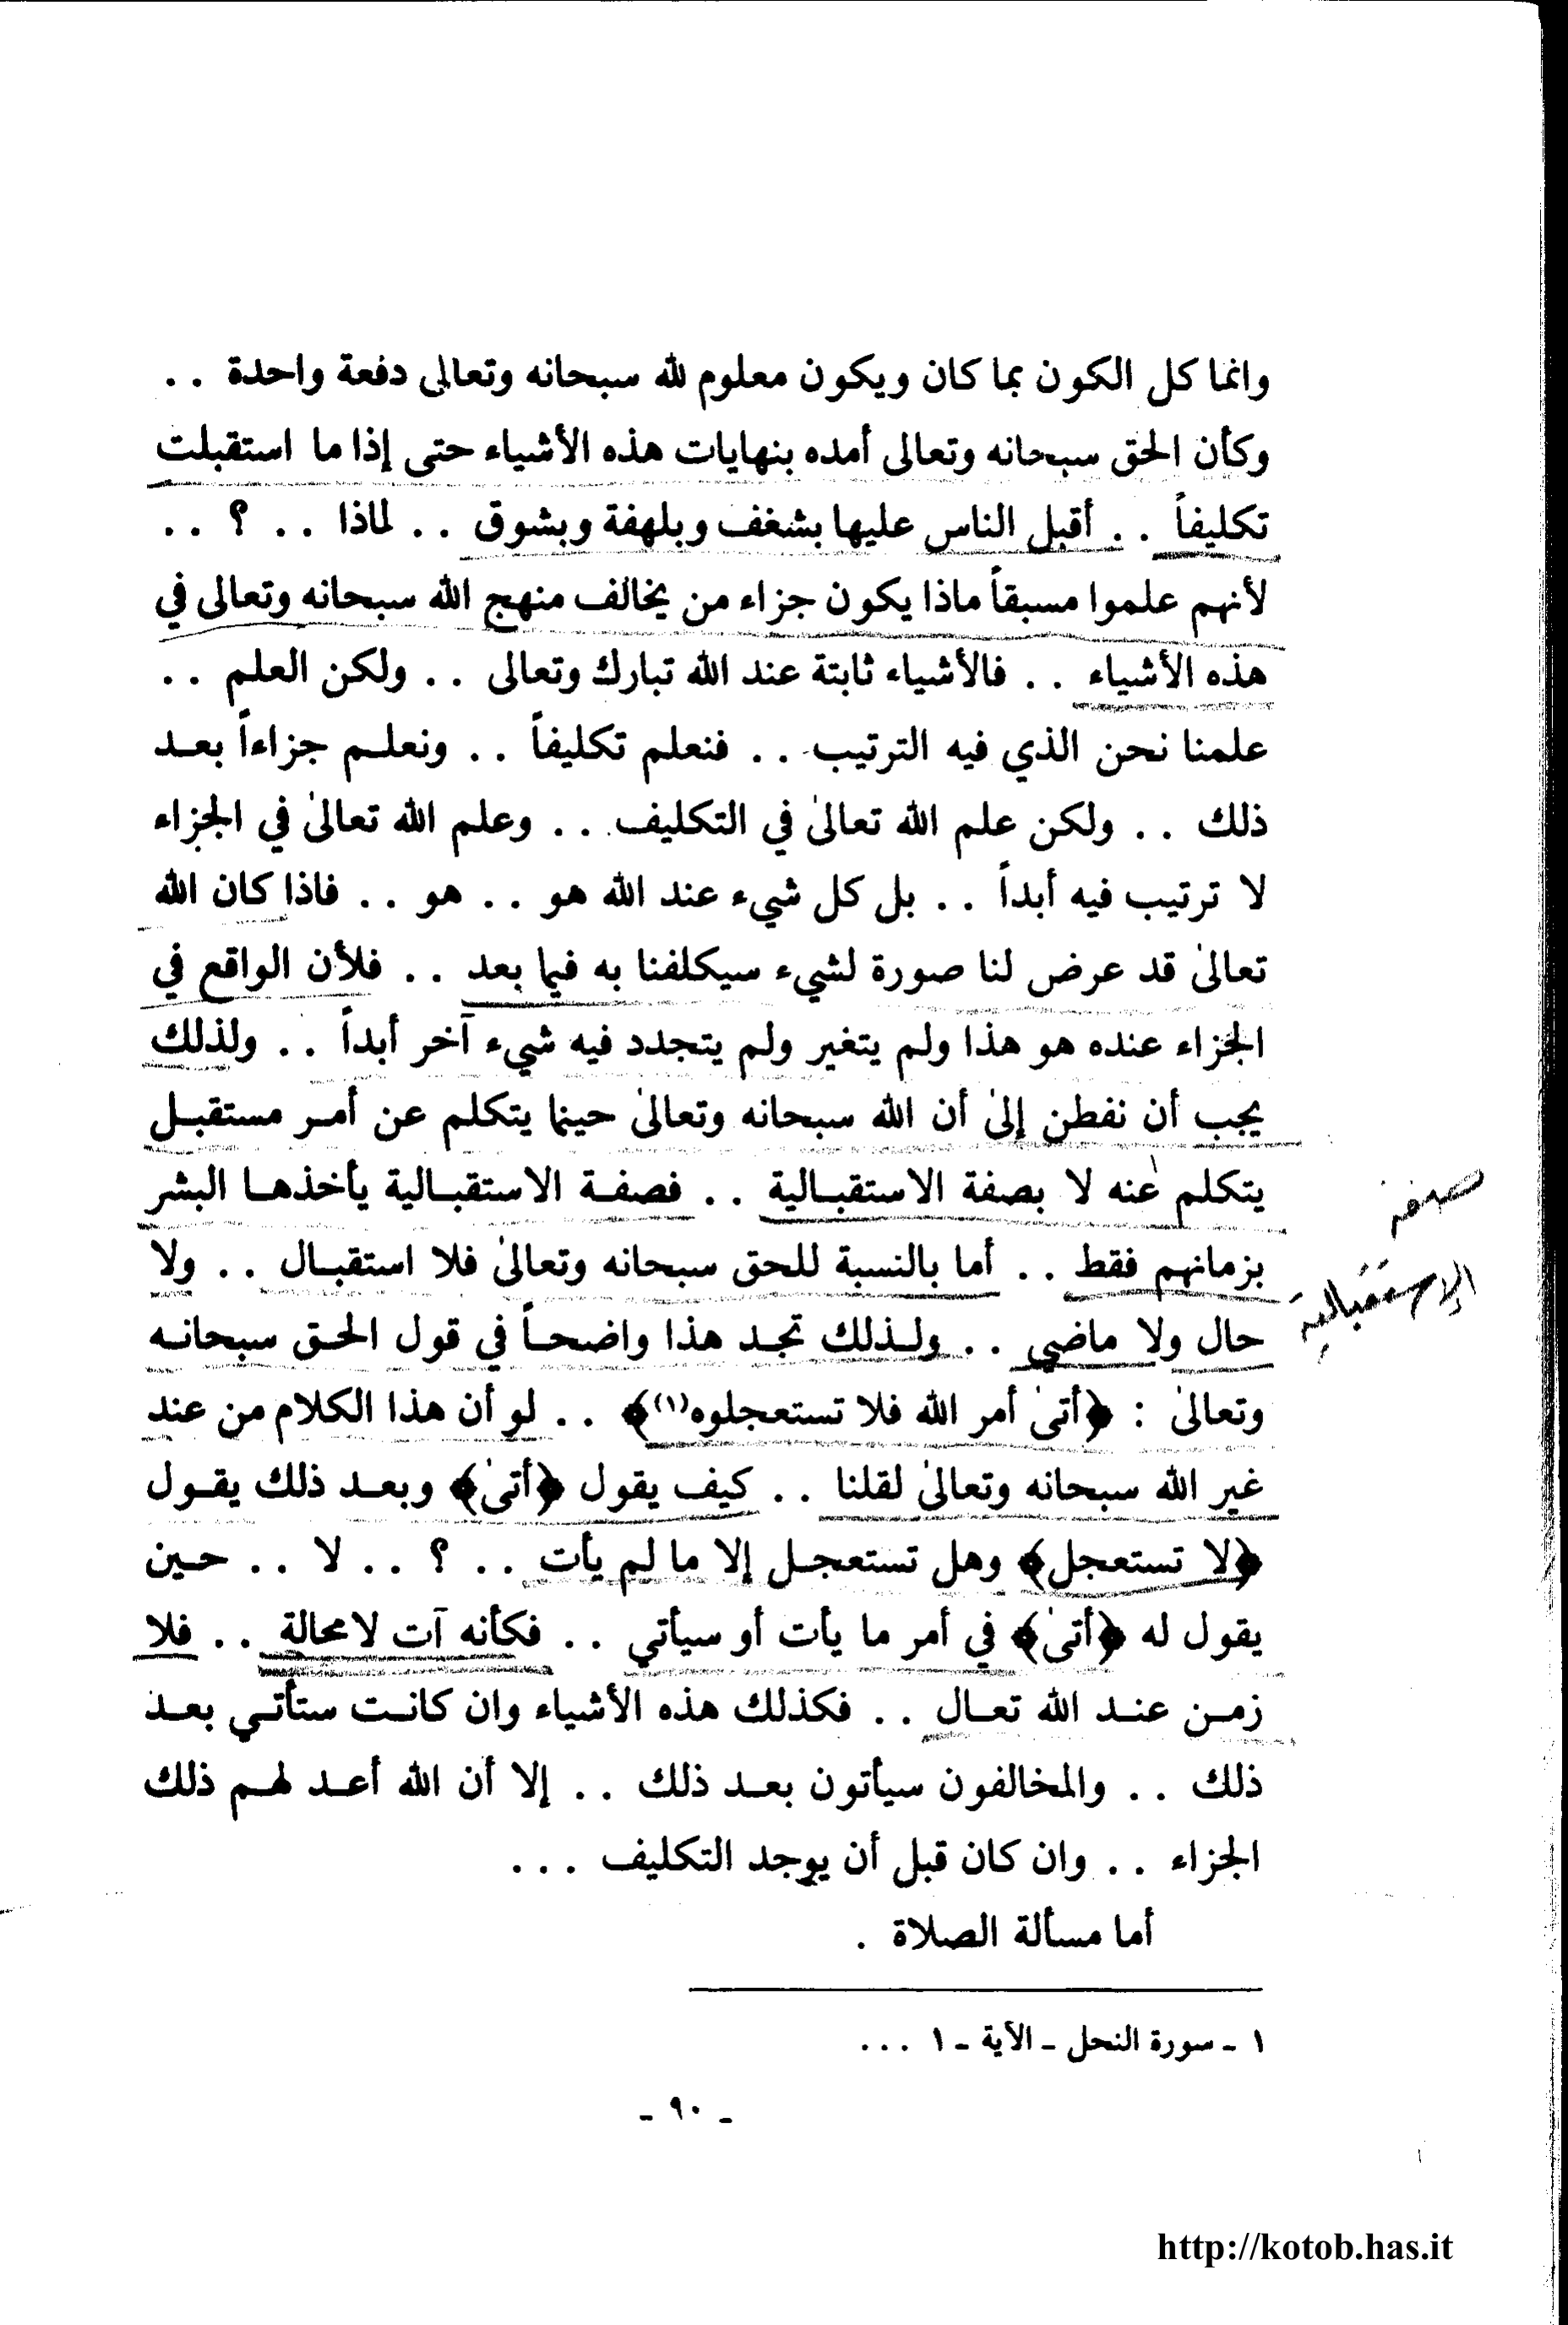 وانما كل الكون بما كان ويكون معلوم لله سبحانه وتعالى دفعة واحدة . .
وكأن الحق سبحانه وتعالى أمده بنهايات هذه الأشياء حتى إذا ما استقبلت
تكليفاً . . أقبل الناس عليها بشغف وبلهفة وبشوق . . لماذا . . ؟ . .
لأنهم علموا مسبقاً ماذا يكون جزاء من يخالف منهج الله سبحانه وتعالى في
هذه الأشياء . . فالأشياء ثابتة عند الله تبارك وتعالى . . ولكن العلم . .
علمنا نحن الذي فيه الترتيب . . فنعلم تكليفاً . . ونعلم جزاءاً بعد
ذلك . . ولكن علم الله تعالىٰ في التكليف . . وعلم الله تعالىٰ في الجزاء
لا ترتيب فيه أبداً . . بل كل شيء عند الله هو . . هو . . فاذا كان الله
تعالىٰ قد عرض لنا صورة لشيء سيكلفنا به فيما بعد . . فلأن الواقع في
الجزاء عنده هو هذا ولم يتغير ولم يتجدد فيه شيء آخر أبداً . . ولذلك
يجب أن نفطن إلىٰ أن الله سبحانه وتعالىٰ حينما يتكلم عن أمر مستقبل
يتكلم عنه لا بصفة الاستقبالية . . فصفة الاستقبالية يأخذها البشر
صفة
بزمانهم فقط . . أما بالنسبة للحق سبحانه وتعالىٰ فلا استقبال . . ولا
الاستقبالية
حال ولا ماضي . . ولذلك تجد هذا واضحاً في قول الحق سبحانه
وتعالىٰ : ﴿أتىٰ أمر الله فلا تستعجلوه(١)﴾ . . لو أن هذا الكلام من عند
غير الله سبحانه وتعالىٰ لقلنا . . كيف يقول ﴿أتىٰ﴾ وبعد ذلك يقول
﴿لا تستعجل﴾ وهل تستعجل إلا ما لم يأت . . ؟ . . لا . . حين
يقول له ﴿أتىٰ﴾ في أمر ما يأت أو سيأتي . . فكأنه آت لا محالة . . فلا
زمن عند الله تعال . . فكذلك هذه الأشياء وان كانت ستأتي بعد
ذلك . . والمخالفون سيأتون بعد ذلك . . إلا أن الله أعد لهم ذلك
الجزاء . . وان كان قبل أن يوجد التكليف . . .
أما مسألة الصلاة .
١ - سورة النحل - الآية - ١ . . .
- ٩٠ -
http://kotob.has.it